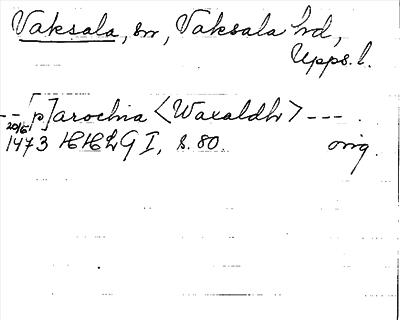 Vaksala, sn, Vaksala hd,
Upps. l.
--[p]arochia <Waxaldhr> ---
20/6
1473 HHLG I, s. 80. orig.